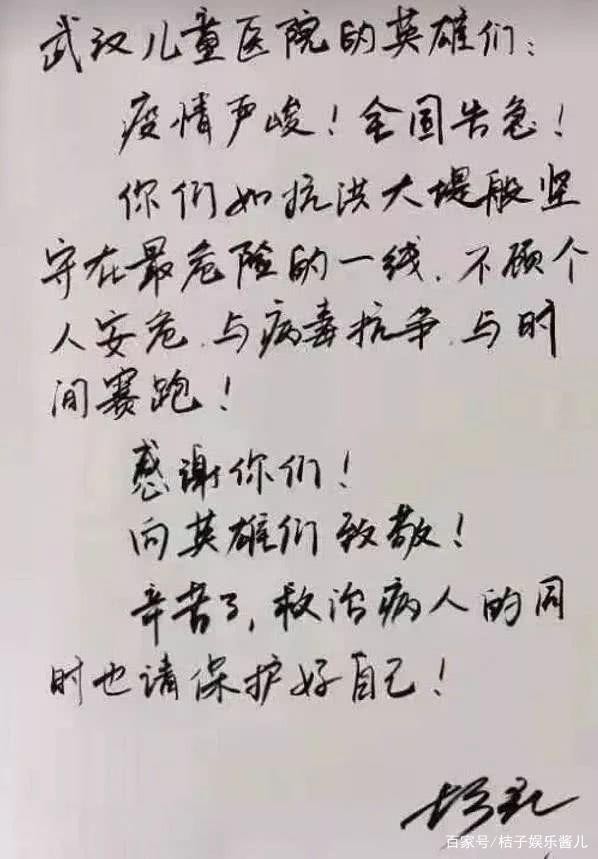 武汉儿童医院的英雄们：
疫情严峻！全国告急！
你们如抗洪大堤般坚
守在最危险的一线、不顾个
人安危、与病毒抗争、与时
间赛跑！
感谢你们！
向英雄们致敬！
辛苦了，救治病人的同
时也请保护好自己！
百家号/桔子娱乐酱儿